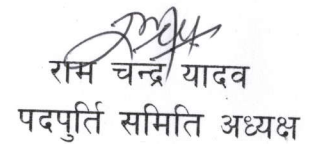 राम चन्द्र यादव
पदपुर्ति समिति अध्यक्ष